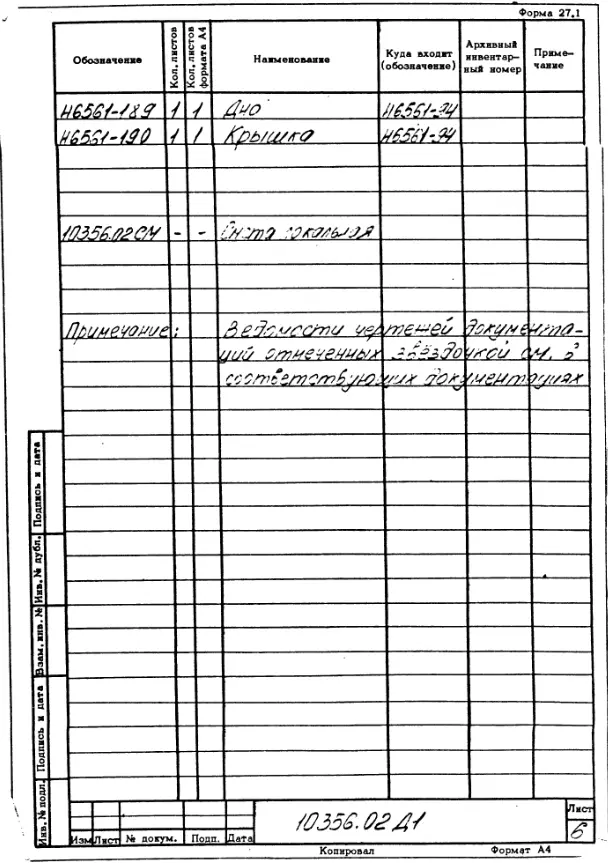 Форма 27.1
Обозначение Кол. листов Кол. листов формата А4 Наименование Куда входит (обозначение) Архивный инвентарный номер Примечание
Н6561-189 1 1 Дно Н6561-94
Н6561-190 1 1 Крышка Н6561-94
10356.02СМ - - Смета локальная
Примечание: Ведомости чертежей документа-
ций отмеченных звёздочкой см. в
соответствующих документациях
Подпись и дата
Инв. № дубл.
Взам. инв. №
Подпись и дата
Инв. № подл.
10356.02 Д1
Лист
6
Изм Лист № докум. Подп. Дата
Копировал Формат А4